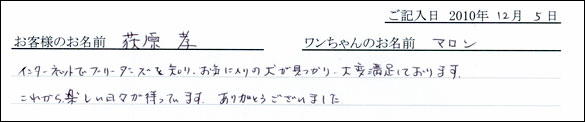 ご記入日 2010年 12月 5日
お客様のお名前 荻原 孝 ワンちゃんのお名前 マロン
インターネットでブリーダーズを知り、お気に入りの犬が見つかり、大変満足しております。
これから楽しい日々が待っています。ありがとうございました